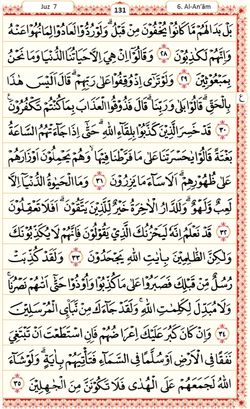 Juz 7 131 6. Al-An'ām
بَلْ بَدَا لَهُمْ مَّا كَانُوْا يُخْفُوْنَ مِنْ قَبْلُ ؕ وَلَوْ رُدُّوْا لَعَادُوْا لِمَا نُهُوْا عَنْهُ
وَاِنَّهُمْ لَكٰذِبُوْنَ ﴿۲۸﴾ وَقَالُوْۤا اِنْ هِىَ اِلَّا حَيَاتُنَا الدُّنْيَا وَمَا نَحْنُ
بِمَبْعُوْثِيْنَ ﴿۲۹﴾ وَلَوْ تَرٰٓى اِذْ وُقِفُوْا عَلٰى رَبِّهِمْ ؕ قَالَ اَلَيْسَ هٰذَا
بِالْحَقِّ ؕ قَالُوْا بَلٰى وَرَبِّنَا ؕ قَالَ فَذُوْقُوا الْعَذَابَ بِمَا كُنْتُمْ تَكْفُرُوْنَ
﴿۳۰﴾ قَدْ خَسِرَ الَّذِيْنَ كَذَّبُوْا بِلِقَآءِ اللّٰهِ ؕ حَتّٰٓى اِذَا جَآءَتْهُمُ السَّاعَةُ
بَغْتَةً قَالُوْا يٰحَسْرَتَنَا عَلٰى مَا فَرَّطْنَا فِيْهَا ۙ وَهُمْ يَحْمِلُوْنَ اَوْزَارَهُمْ
عَلٰى ظُهُوْرِهِمْ ؕ اَلَا سَآءَ مَا يَزِرُوْنَ ﴿۳۱﴾ وَمَا الْحَيٰوةُ الدُّنْيَاۤ اِلَّا
لَعِبٌ وَّلَهْوٌ ؕ وَلَلدَّارُ الْاٰخِرَةُ خَيْرٌ لِّلَّذِيْنَ يَتَّقُوْنَ ؕ اَفَلَا تَعْقِلُوْنَ
﴿۳۲﴾ قَدْ نَعْلَمُ اِنَّهٗ لَيَحْزُنُكَ الَّذِىْ يَقُوْلُوْنَ فَاِنَّهُمْ لَا يُكَذِّبُوْنَكَ
وَلٰكِنَّ الظّٰلِمِيْنَ بِاٰيٰتِ اللّٰهِ يَجْحَدُوْنَ ﴿۳۳﴾ وَلَقَدْ كُذِّبَتْ
رُسُلٌ مِّنْ قَبْلِكَ فَصَبَرُوْا عَلٰى مَا كُذِّبُوْا وَاُوْذُوْا حَتّٰٓى اَتٰٮهُمْ نَصْرُنَا ۚ
وَلَا مُبَدِّلَ لِكَلِمٰتِ اللّٰهِ ۚ وَلَقَدْ جَآءَكَ مِنْ نَّبَاِى الْمُرْسَلِيْنَ
﴿۳۴﴾ وَاِنْ كَانَ كَبُرَ عَلَيْكَ اِعْرَاضُهُمْ فَاِنِ اسْتَطَعْتَ اَنْ تَبْتَغِىَ
نَفَقًا فِى الْاَرْضِ اَوْ سُلَّمًا فِى السَّمَآءِ فَتَاْتِيَهُمْ بِاٰيَةٍ ؕ وَلَوْ شَآءَ
اللّٰهُ لَجَمَعَهُمْ عَلَى الْهُدٰى فَلَا تَكُوْنَنَّ مِنَ الْجٰهِلِيْنَ ﴿۳۵﴾